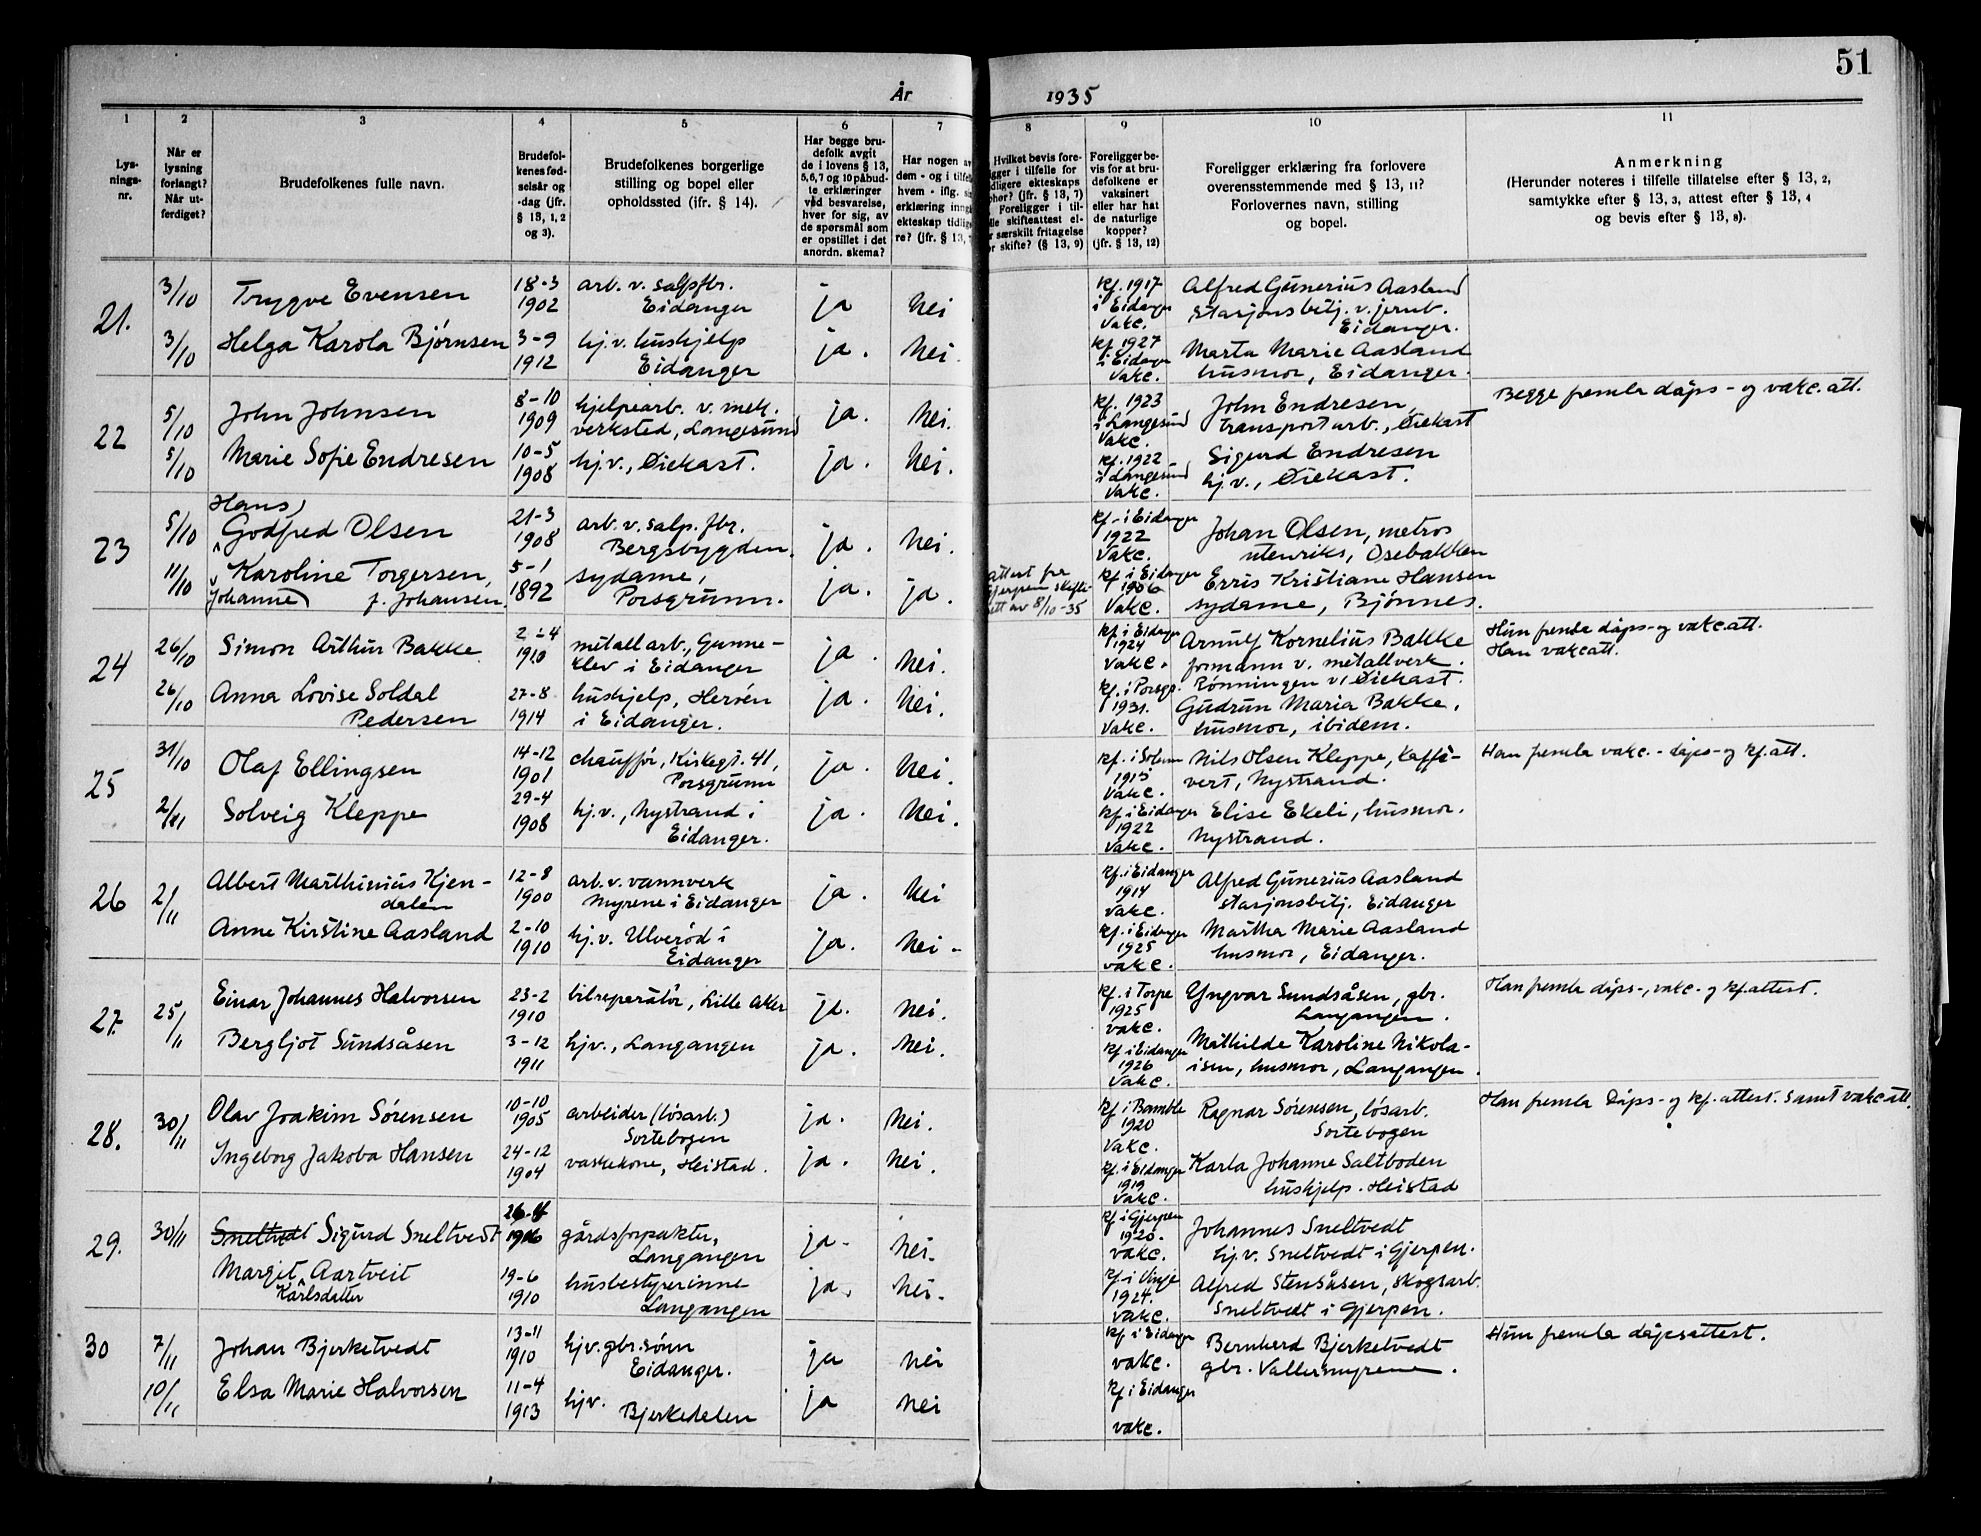 51
År 1935
1 2 3 4 5 6 7 8 9 10 11
Lys-
nings-
nr.
Når er
lysning
forlangt?
Når ut-
ferdiget?
Brudefolkenes fulle navn.
Brudefol-
kenes fød-
selsår og
-dag (jfr.
§ 13, 1, 2
og 3).
Brudefolkenes borgerlige
stilling og bopel eller
opholdssted (ifr. § 14).
Har begge bru-
defolk avgit
de i lovens § 13,
5, 6, 7 og 10 påbud-
te erklæringer
ved besvarelse,
hver for sig, av
de spørsmål som
er opstillet i det
anordn. skema?
Har nogen av
dem - og i tilfelle
hvem - iflg. sin
erklæring inngå
ekteskap tidlige
re? (jfr. § 13, 7
Hvilket bevis fore-
gger i tilfelle for
dligere ekteskaps
pher? (jfr. § 13, 7)
Foreligger i til-
lle skifteattest el-
r særskilt fritagelse
or skifte? (§ 13, 9)
Foreligger be-
vis for at bru-
defolkene er
vaksinert
eller har hat
de naturlige
kopper?
(jfr. § 13, 12)
Foreligger erklæring fra forlovere
overensstemmende med § 13, 11?
Forlovernes navn, stilling
og bopel.
Anmerkning
(Herunder noteres i tilfelle tillatelse efter § 13, 2,
samtykke efter § 13, 3, attest efter § 13, 4
og bevis efter § 13, 8).
21.
3/10 Trygve Evensen 18-3 1902 arb. v. salpfbr.
Eidanger ja nei
kf. 1917
i Eidanger
Vakc.
Alfred Gunerius Aasland
stasjonsbitj. v. jernb.
Eidanger.
3/10 Helga Karola Bjørnsen 3-9 1912 hj.v. hushjelp
Eidanger ja. nei.
kf 1927
i Eidanger
Vakc.
Marta Marie Aasland
husmor, Eidanger.
22
5/10 John Johnsen 8-10 1909 hjelpearb. v. mek.
verksted, Langesund ja. nei.
kf. 1923
i Langesund
Vakc.
John Endresen,
transportarb., Øiekast
Begge fremla dåps- og vakc. att.
5/10 Marie Sofie Endresen 10-5 1908 hj.v., Øiekast. ja. nei.
kf. 1922
i Langesund
Vakc.
Sigurd Endresen
hj.v., Øiekast.
23
Hans
5/10 Godfred Olsen 21-3 1908 arb. v. salp. fbr.
Bergsbygden. ja. nei.
kf. i Eidanger
1922
Vakc.
Johan Olsen, matros
utenriks, Osebakken
11/10 Karoline Torgersen,
Johanne f. Johansen. 5-1 1892 sydame,
Porsgrunn. ja. ja.
attest fra
Gjerpen skifte-
ett av 8/10-35
kf i Eidanger
1906
Vakc.
Erris Kristiane Hansen
sydame, Bjønnes.
24
26/10 Simon Arthur Bakke 2-4 1910 metallarb., Gunne-
klev i Eidanger ja. nei.
kf i Eidanger
1924
Vakc.
Arnulf Kornelius Bakke
formann v. metallverk.
Rønningen v/ Øiekast.
Hun fremla dåps- og vakc. att.
Han vakc att.
26/10 Anna Lovise Soldal
Pedersen 27-8 1914 hushjelp, Herøen
i Eidanger. ja. nei.
kf. i Porsgr.
1931.
Vakc.
Gudrun Maria Bakke,
husmor, ibidem.
25
31/10 Olaf Ellingsen 14-12 1901 chauffør, Kirkegt. 41,
Porsgrunn ja. nei.
kf. i Solum
1915
Vakc.
Nils Olsen Kleppe, kaffi-
vert, Nystrand.
Han fremla vakc. - dåps- og kf. att.
2/11 Solveig Kleppe 29-4 1908 hj.v., Nystrand i
Eidanger. ja. nei.
kf. i Eidanger
1922
Vakc.
Elise Ekeli, husmor.
Nystrand.
26
2/11 Albert Marthinius Kjen-
dalen 12-8 1900 arb. v. vannverk
Myrene i Eidanger ja. nei
kf. i Eidanger
1914
vakc.
Alfred Gunerius Aasland
stasjonsbitj. Eidanger
Anne Kirstine Aasland 2-10 1910 hj.v. Ulverød i
Eidanger ja. nei-
kf. i Eidanger
1925
vakc.
Martha Marie Aasland
husmor, Eidanger.
27.
25/11 Einar Johannes Halvorsen 23-2 1910 bilreparatør, Lille Aker ja. nei.
kf. i Torpe
1925
vakc.
Yngvar Sundsåsen, gbr.
Langangen.
Han fremla dåps-, vakc- og kf.attest.
Bergljot Sundsåsen 3-12 1911 hjv., Langangen ja. nei.
kf i Eidanger
1926
Vakc.
Mathilde Karoline Nikola-
isen, husmor, Langangen.
28.
30/11 Olav Joakim Sørensen 10-10 1905 arbeider (løsarb.)
Sortebogen ja. nei.
kf i Bamble
1920
Vakc.
Ragnar Sørensen, løsarb.
Sortebogen
Han fremla dåps- og kf. attest. samt vakc att.
Ingeborg Jakoba Hansen 24-12 1904 vaskekone, Heistad. ja. nei.
kf. i Eidanger
1919
Vakc.
Karla Johanne Saltboden
hushjelp. Heistad
29.
30/11 Sneltvedt Sigurd Sneltvedt 26-4 1906 gårdsforpakter,
Langangen ja- nei-
kf i Gjerpen
1920.
vakc.
Johannes Sneltvedt
hj.v. Sneltvedt i Gjerpen.
Margit Aartveit
Karlsdatter 19-6 1910 husbestyrerinne
Langangen ja. nei-
kf. i Vinje
1924.
Vakc.
Alfred Stensåsen, skogsarb.
Sneltvedt i Gjerpen.
30
7/11 Johan Bjerketvedt 13-11 1910 hjv. gbr.sønn
Eidanger. ja nei
kf i Eidanger
vakc.
Bernhard Bjerketvedt
gbr. Vallermyrene.
Hun fremla dåpsattest.
10/11 Elsa Marie Halvorsen 11-4 1913 hjv.
Bjerkedalen ja nei
kf i Eidanger
vakc.